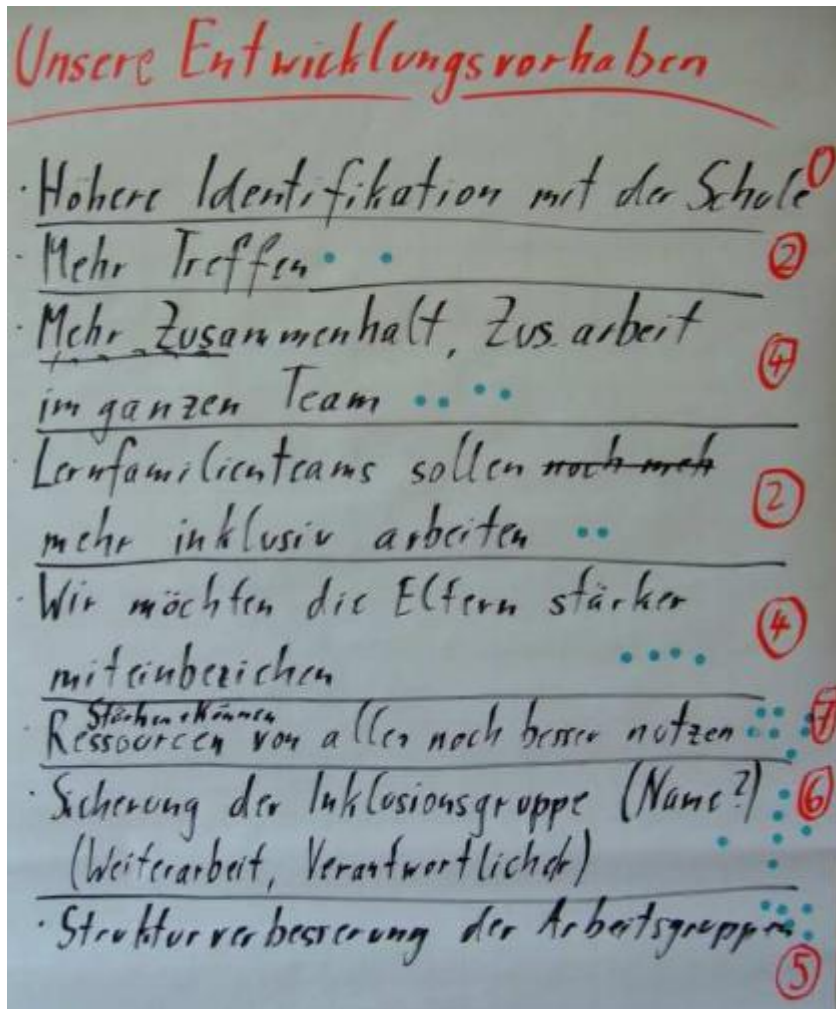 Unsere Entwicklungsvorhaben
· Höhere Identifikation mit der Schule 0
· Mehr Treffen 2
· Mehr Zusammenhalt, Zus. arbeit
im ganzen Team 4
· Lernfamilienteams sollen noch meh
mehr inklusiv arbeiten 2
· Wir möchten die Eltern stärker 4
miteinbeziehen
Stärken + Können
· Ressourcen von allen noch besser nutzen 7
· Sicherung der Inklusionsgruppe (Name?) 6
(Weiterarbeit, Verantwortlicher)
· Strukturverbesserung der Arbeitsgruppen
5